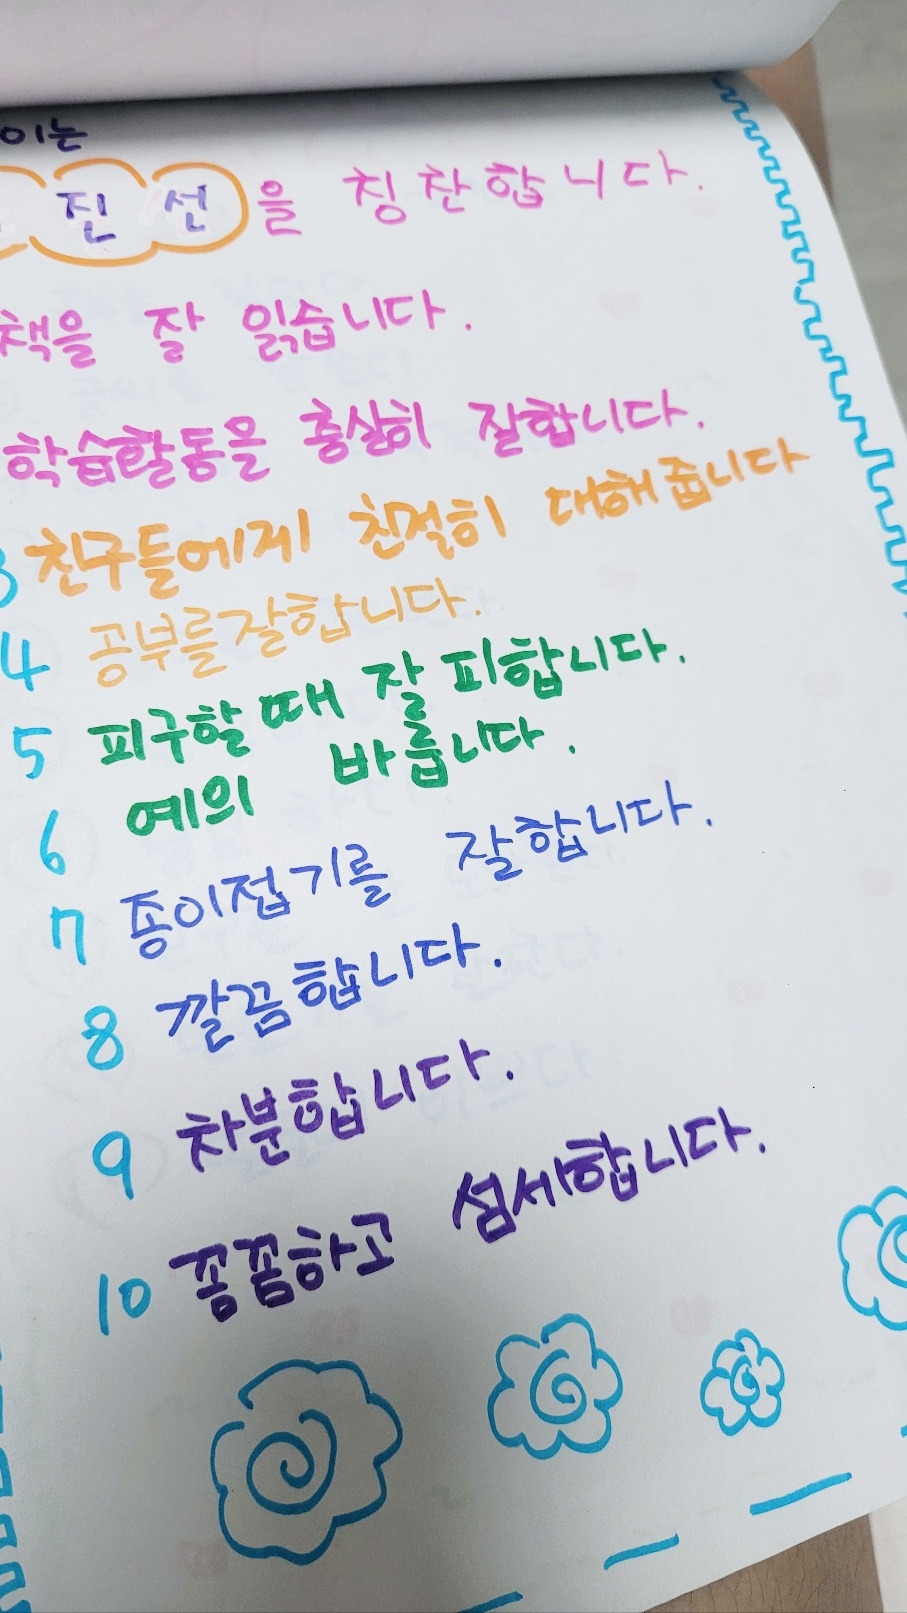 이는
진선을 칭찬합니다.
책을 잘 읽습니다.
학습활동을 충실히 잘합니다.
3 친구들에게 친절히 대해줍니다
4 공부를잘합니다.
5 피구할때 잘 피합니다.
6 예의 바릅니다.
7 종이접기를 잘합니다.
8 깔끔합니다.
9 차분합니다.
10 꼼꼼하고 섬세합니다.